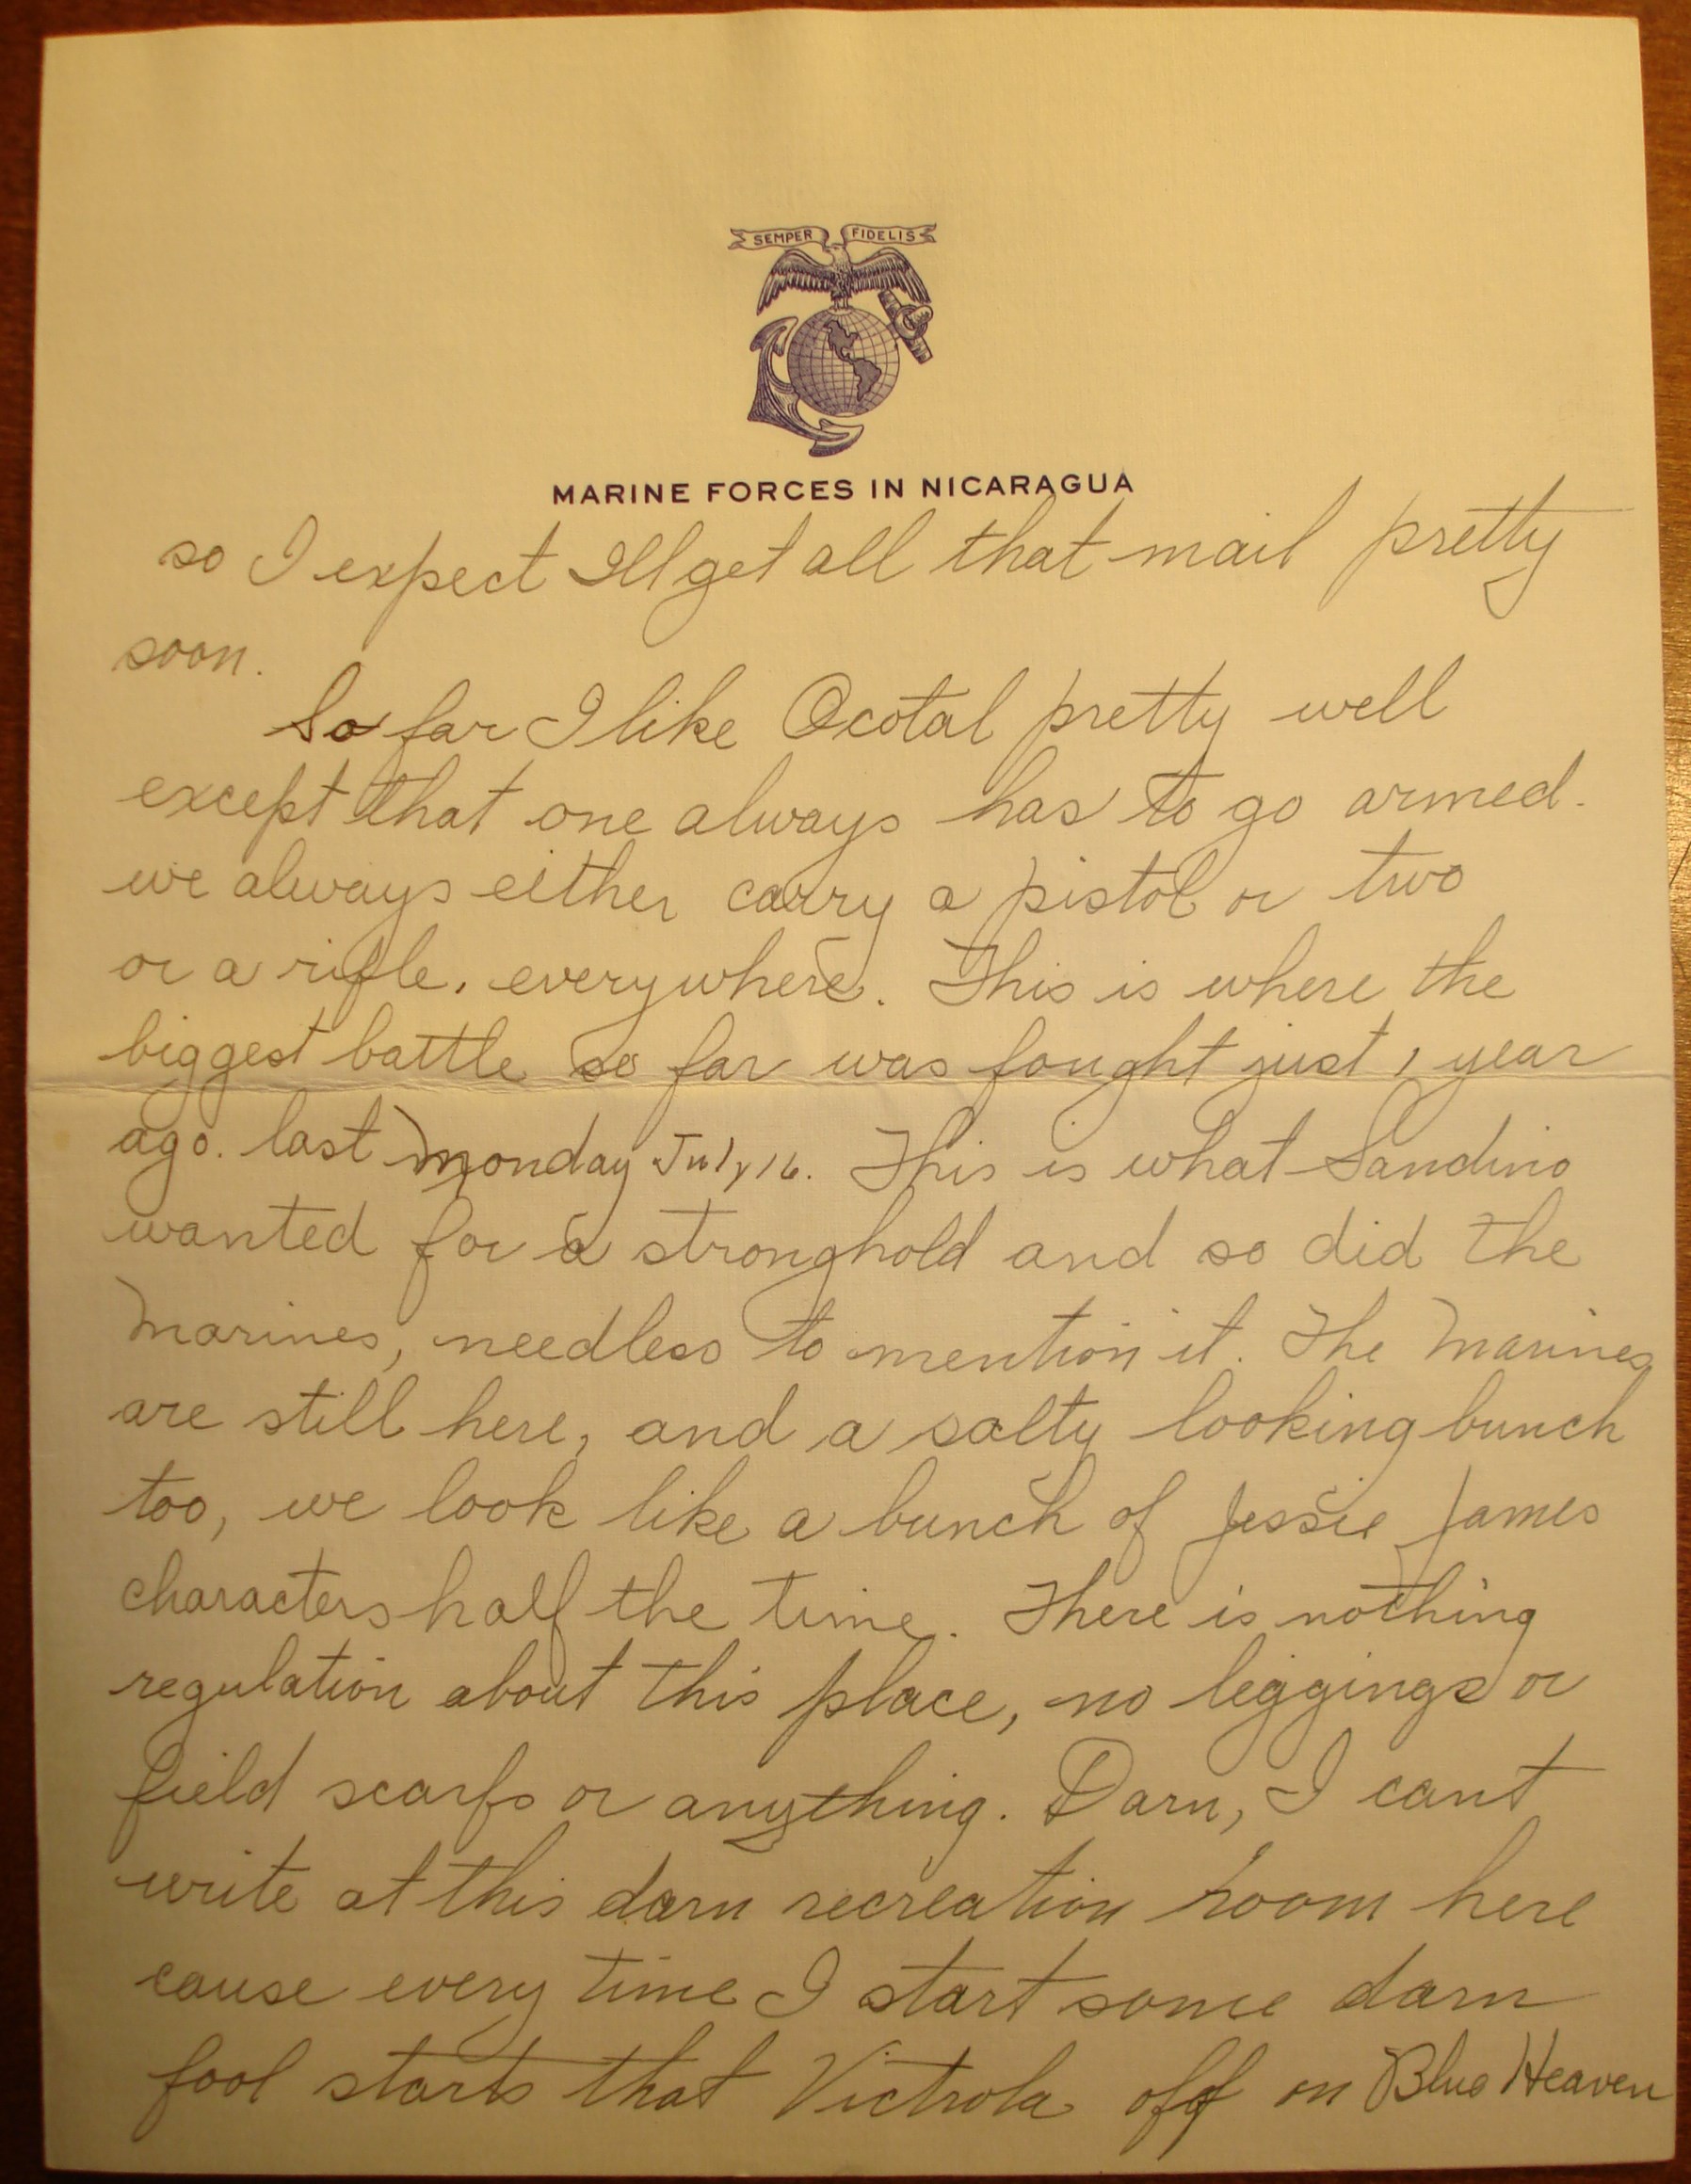 SEMPER FIDELIS
MARINE FORCES IN NICARAGUA
so I expect Ill get all that mail pretty
soon.
So far I like Ocotal pretty well
except that one always has to go armed.
we always either carry a pistol or two
or a rifle. everywhere. This is where the
biggest battle so far was fought just 1 year
ago. last Monday July 16. This is what Sandino
wanted for a stronghold and so did the
Marines, needless to mention it. The Marines
are still here, and a salty looking bunch
too, we look like a bunch of Jessie James
characters half the time. There is nothing
regulation about this place, no leggings or
field scarfs or anything. Darn, I cant
write at this darn recreation room here
cause every time I start some darn
fool starts that Victrola off on Blue Heaven